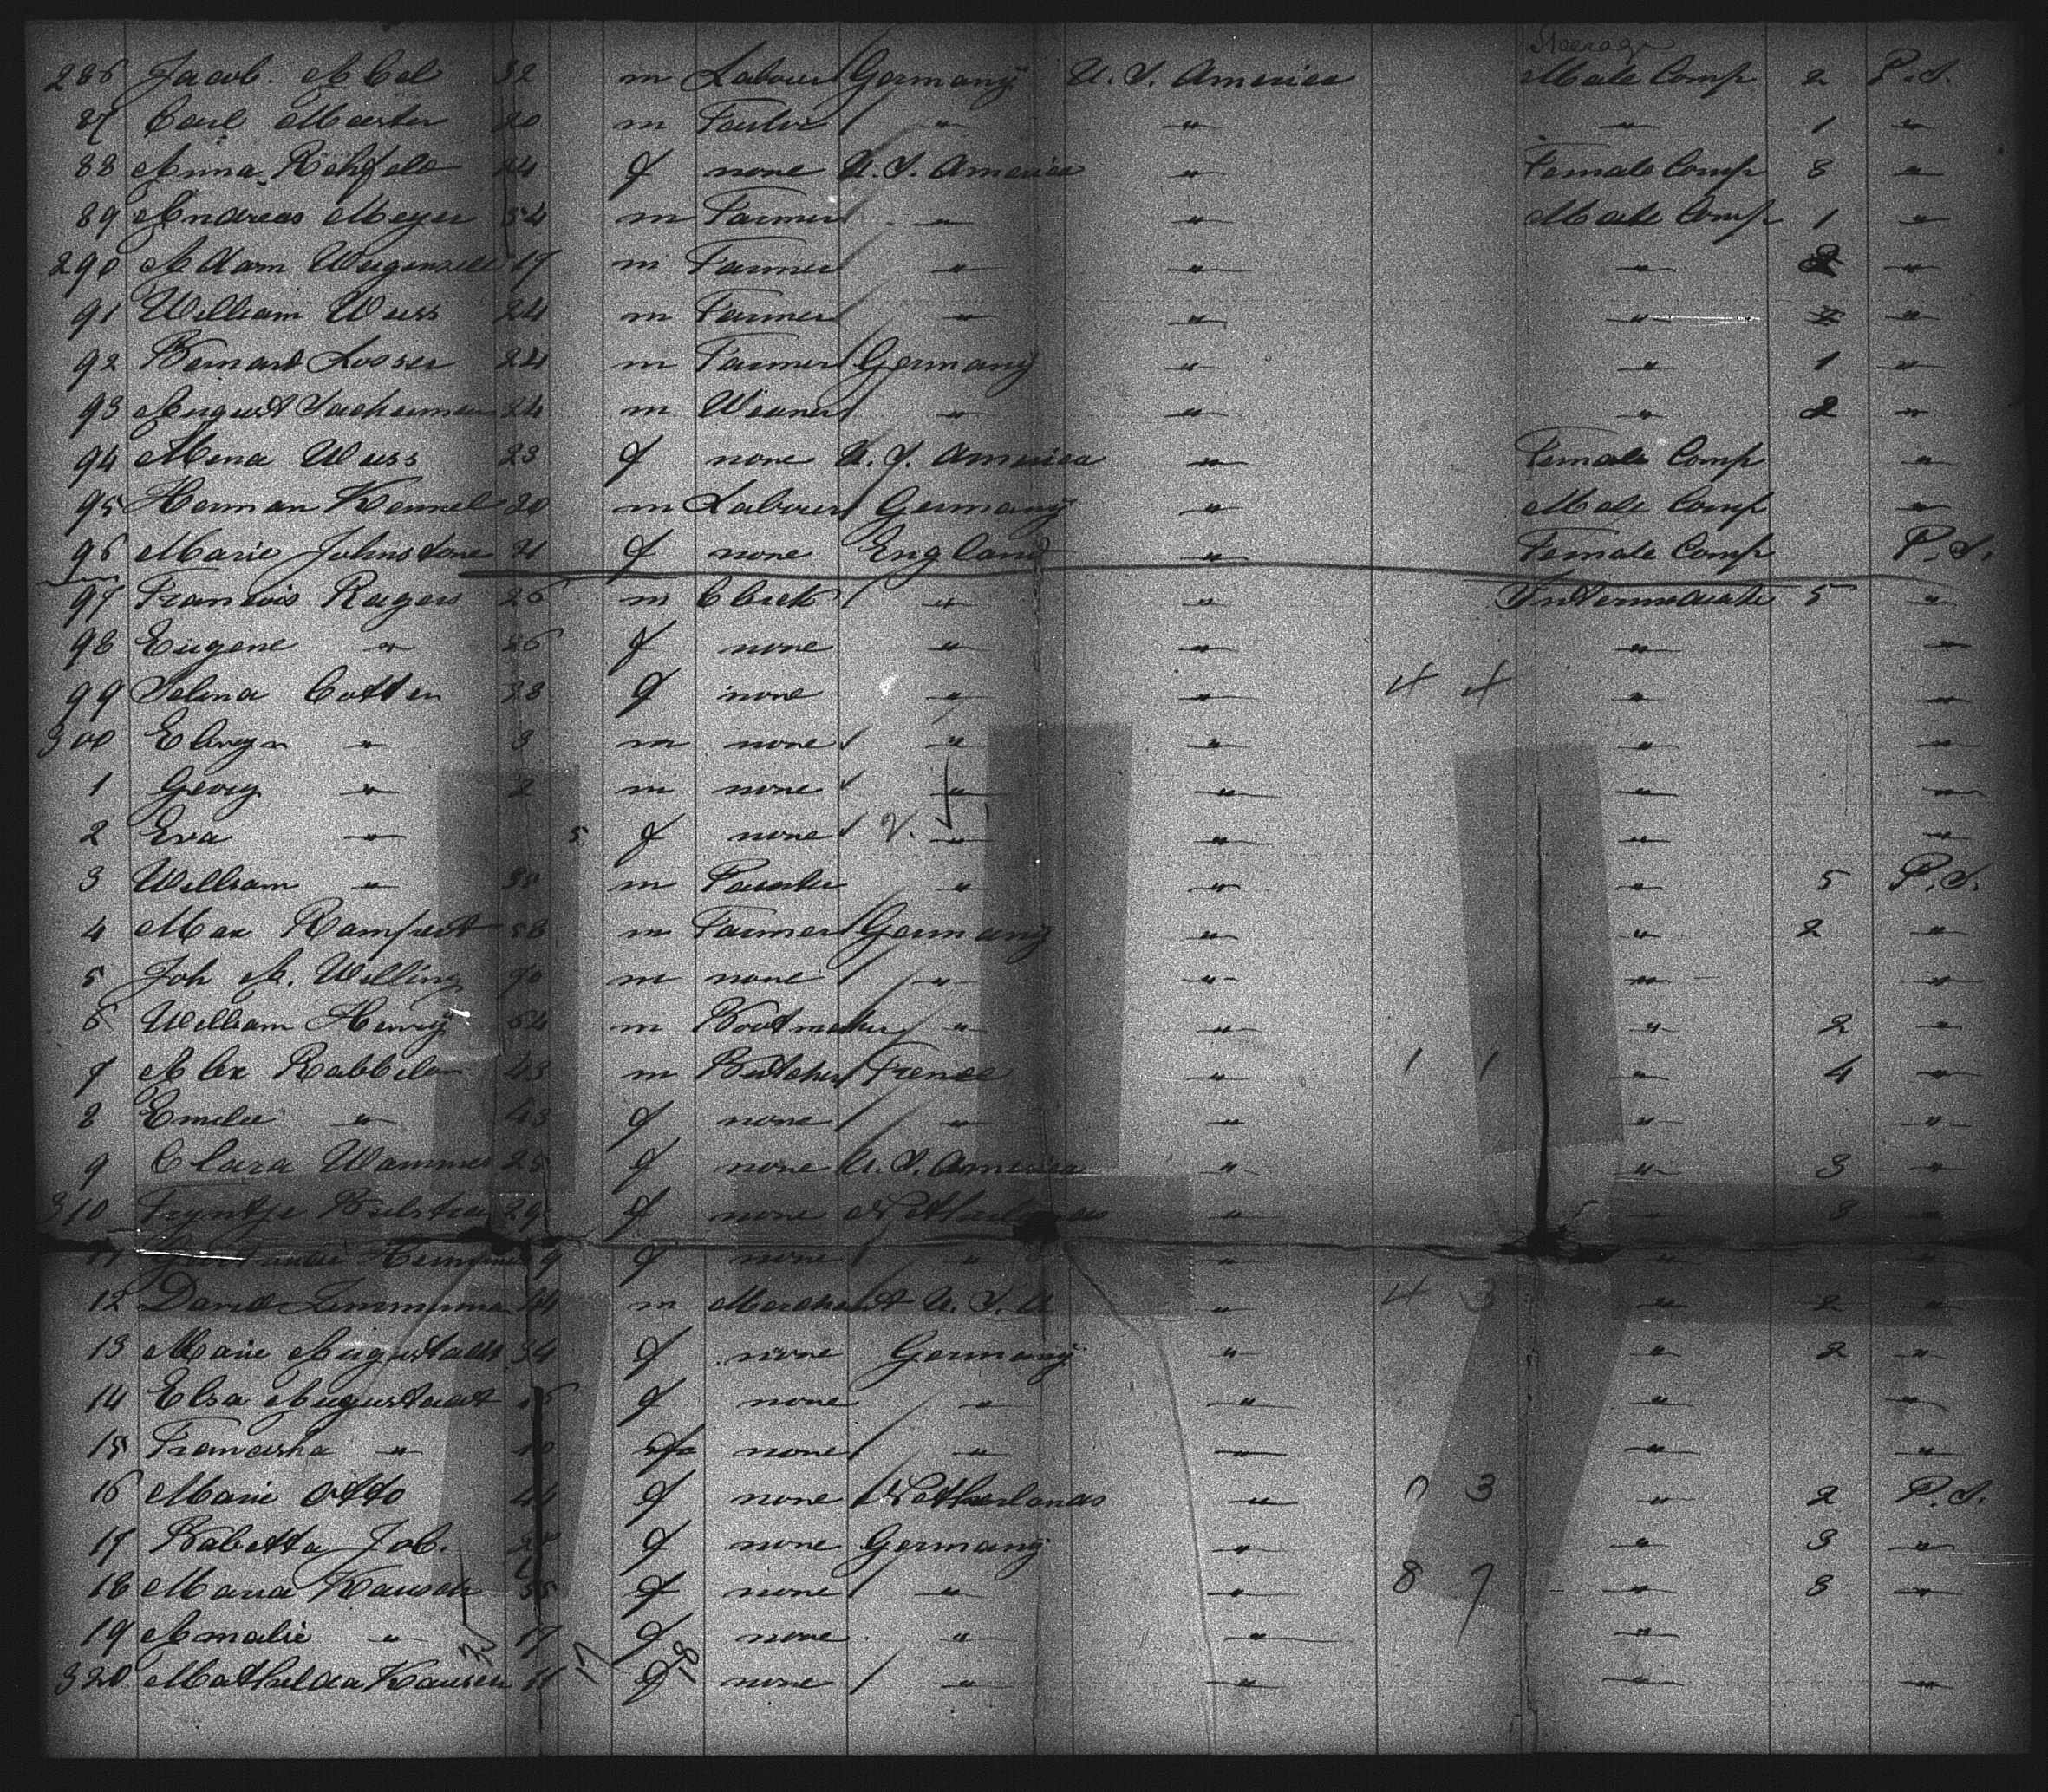 Steerage
286 Jacob. Abel 32 m Labour Germany U. S. America Male Comp 2 P. S.
87 Carl Master 20 m " " " 1 "
88 Anna 24 f none U. S. America " Female Comp 3 "
89 Andreas Meyer 54 m Farmer " " Male Comp 1 "
290 Adam 17 m Farmer " " " 2 "
91 William Weiss 24 m Farmer " " " 2 "
92 Bernard Losser 24 m Farmer Germany " " 1 "
93 August 24 m " " " 2 "
94 Mena Weiss 23 f none U. S. America " Female Comp "
95 Herman Kennel 20 m Labour Germany " Male Comp "
96 Marie Johnstone 21 f none England " Female Comp P. S.
97 Francois Rogers 26 m Clerk " " Intermediate 5 "
98 Eugene " 26 f none " " " "
99 Selina Cotten 28 f none " " 4 4 " "
300 " 3 m none " " " "
1 Georg " 2 m none " " " "
2 Eva " 5 f none 2. " " " "
3 William " m " " " 5 P. S.
4 Max 58 m Farmer Germany " " 2 "
5 Joh A. Welling 70 m none " " " "
6 William Henry 54 m Bootmaker " " " 2 "
7 Alex 43 m Butcher " 1 1 " 4 "
8 Emelie " 43 f none " " " "
9 Clara Wammes 25 f none U. S. America " " 3 "
310 Tryntje 29 f none Netherlands " 5 " 3 "
11 f none " " " "
12 David 44 m Merchant U. S. A " 4 3 " 2 "
13 Marie Augustadt 34 f none Germany " " 2 "
14 Elsa Augustadt 16 f none " " " "
15 " 10 f none " " " "
16 Marie Otto 44 f none Netherlands " 3 " 2 P. S.
17 Babetta Job. f none Germany " " 3 "
18 Maria 35 f none " " 8 7 " 3 "
19 Amalie " 17 f none " " "
320 Mathelda 11 17 f 18 none " " " "